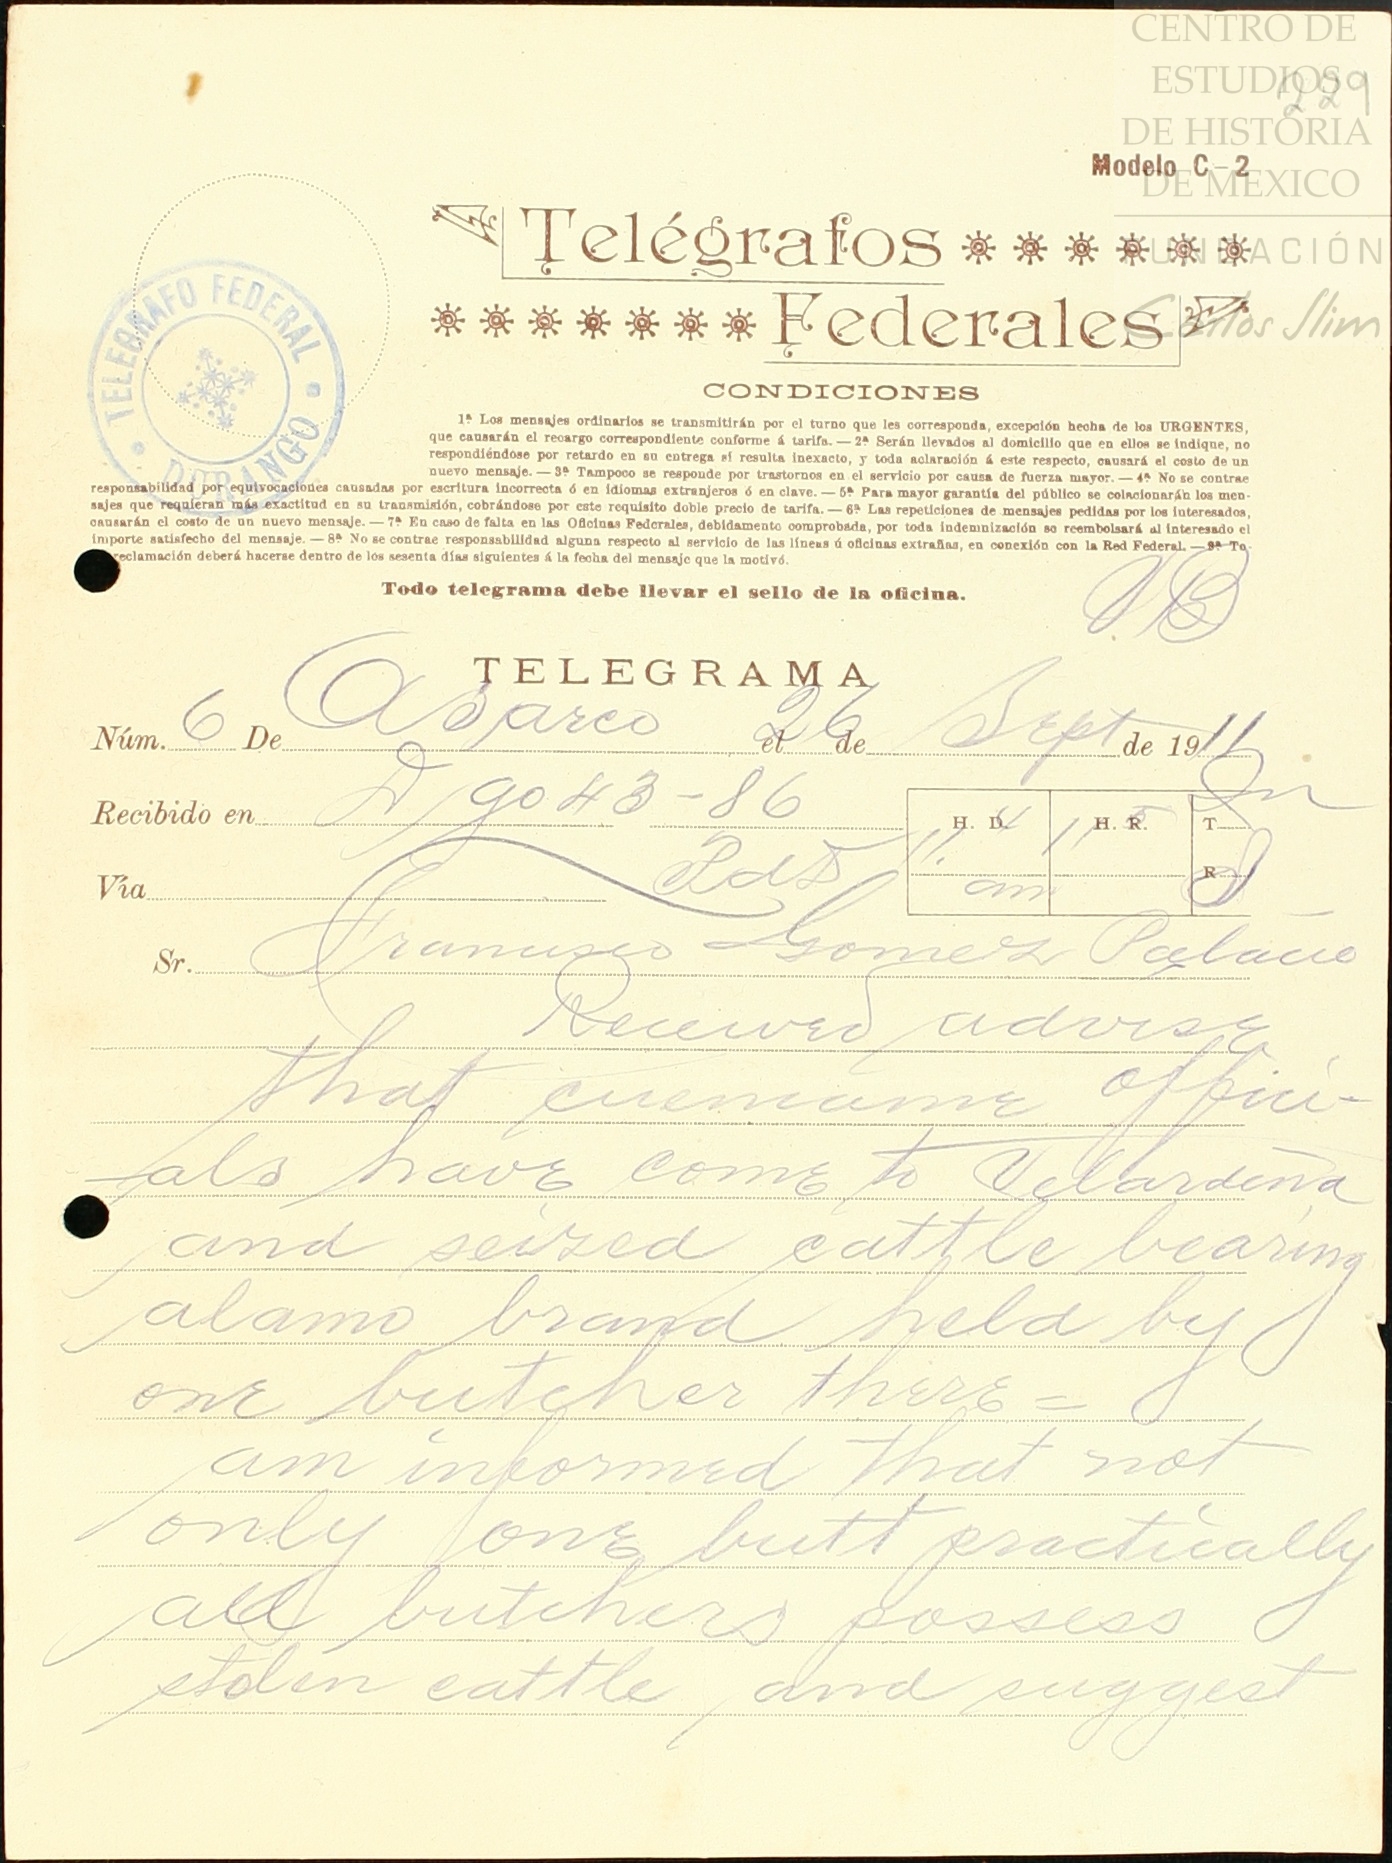 CENTRO DE
ESTUDIOS
DE HISTORIA
DE MEXICO
FUNDACIÓN
Carlos Slim
229
Modelo C-2
Telégrafos
Federales
TELEGRAFO FEDERAL
DURANGO
CONDICIONES
1ª Los mensajes ordinarios se transmitirán por el turno que les corresponda, excepción hecha de los URGENTES,
que causarán el recargo correspondiente conforme á tarifa. — 2ª Serán llevados al domicilio que en ellos se indique, no
respondiéndose por retardo en su entrega si resulta inexacto, y toda aclaración á este respecto, causará el costo de un
nuevo mensaje. — 3ª Tampoco se responde por trastornos en el servicio por causa de fuerza mayor. — 4ª No se contrae
responsabilidad por equivocaciones causadas por escritura incorrecta ó en idiomas extranjeros ó en clave. — 5ª Para mayor garantía del público se colacionarán los men-
sajes que requieran más exactitud en su transmisión, cobrándose por este requisito doble precio de tarifa. — 6ª Las repeticiones de mensajes pedidas por los interesados,
causarán el costo de un nuevo mensaje. — 7ª En caso de falta en las Oficinas Federales, debidamente comprobada, por toda indemnización se reembolsará al interesado el
importe satisfecho del mensaje. — 8ª No se contrae responsabilidad alguna respecto al servicio de las líneas ú oficinas extrañas, en conexión con la Red Federal. — 9ª To-
reclamación deberá hacerse dentro de los sesenta días siguientes á la fecha del mensaje que la motivó.
Todo telegrama debe llevar el sello de la oficina.
TELEGRAMA
Núm. 6 De Asarco el 26 de Sept de 1911
Recibido en Dgo 43-86
H. D. H. R. T.
11. am 11 R
Vía
Sr. Francisco Gomez Palacio
Received advise
that cuencame offici-
als have come to Velardeña
and seized cattle bearing
alamo brand held by
one butcher there =
am informed that not
only one butt practically
all butchers possess
stolen cattle and suggest